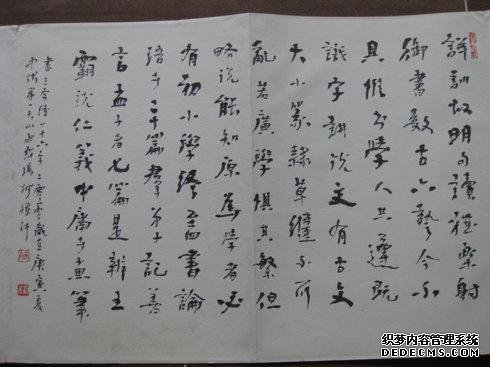 詳訓故明句讀禮樂射
御書數古六藝今不
具惟書學人共遵既
識字講說文有古文
大小篆隸草繼不可
亂若廣學懼其繁但
略說能知原為學者必
有初小學終至四書論
語者二十篇羣弟子記善
言孟子者七篇是辨王
霸說仁義中庸子思筆
書三字經 歲在庚寅夏
织梦内容管理系统
DEDECMS.COM